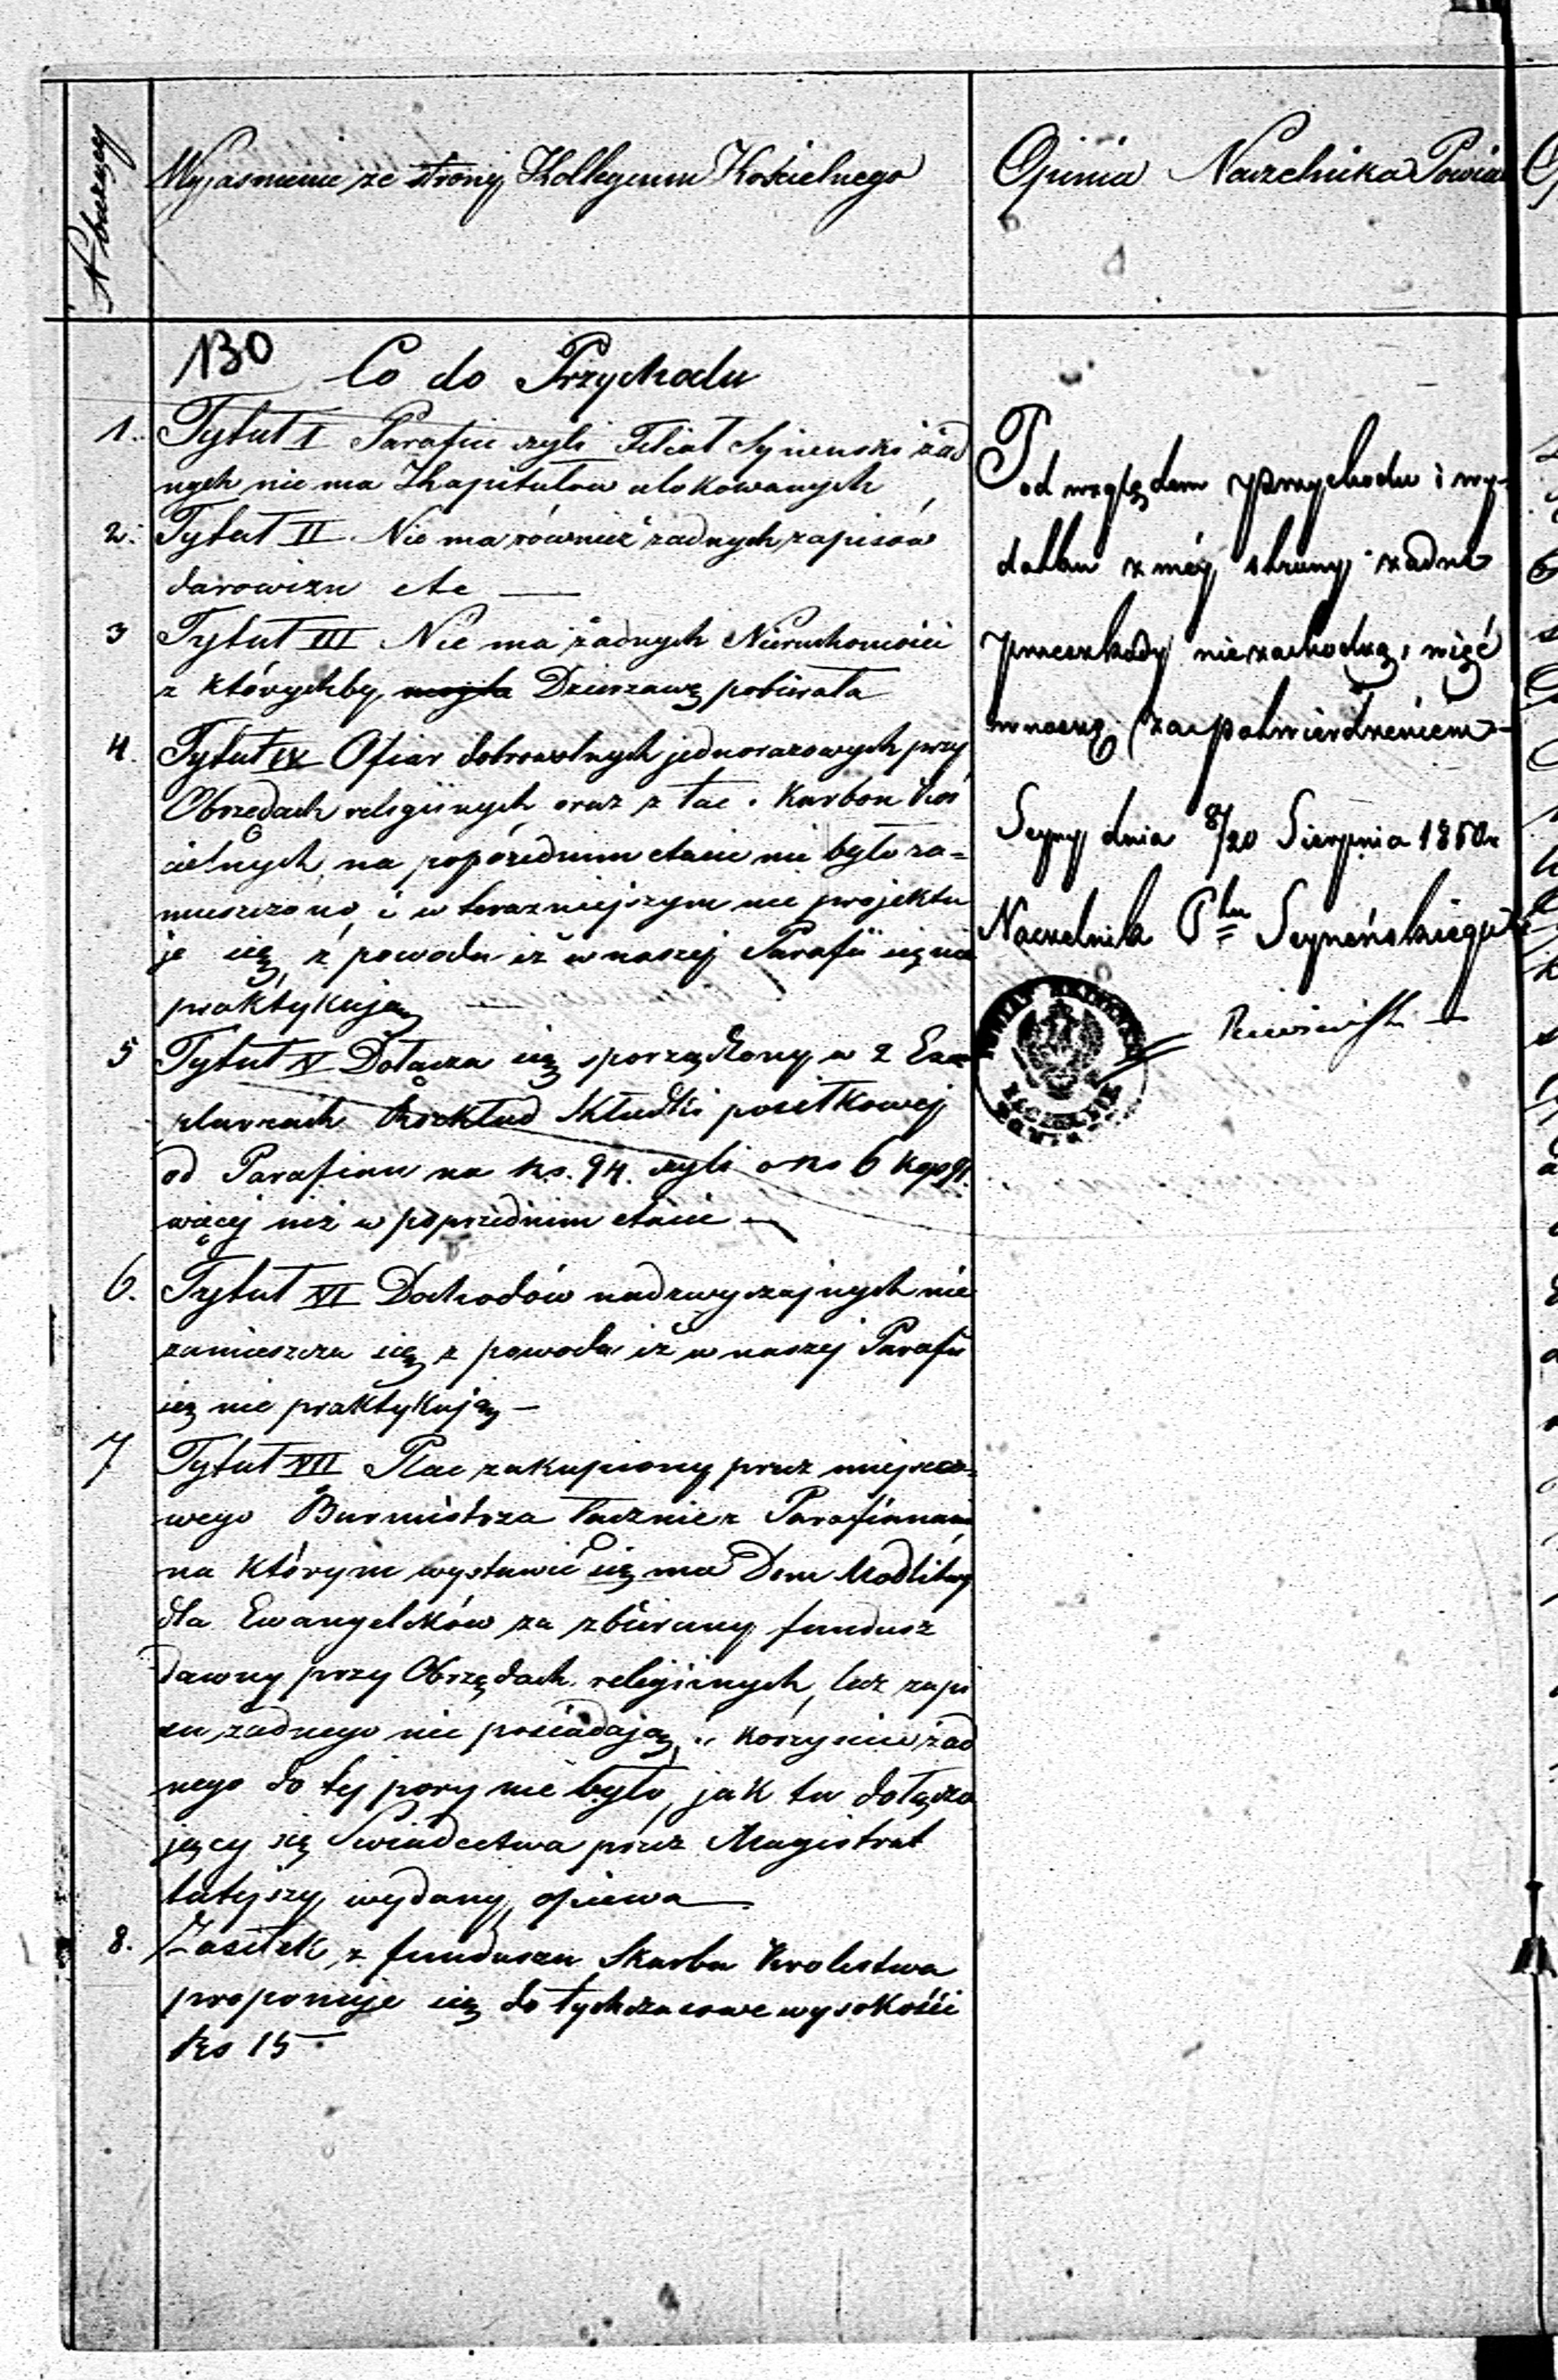 N bieżący
Wyjaśnienie ze strony Kollegium Kościelnego
Opinia Naczelnika Powia
130
Co do Przychodu
1. Tytuł I Parafia czyli Filiał Syneński żad
nych nie ma Kapitałów ulokowanych
2. Tytuł II Nie ma również żadnych zapisów
darowizn etc
3 Tytuł III Nie ma żadnych Nieruchomości
z którychby Dzierżawę pobierała
4. Tytuł IV Ofiar dobrowolnych jednorazowych przy
Obrzędach religijnych oraz z tac i Karbon Koś
cielnych, na poprzednim etacie nie było za=
mieszczono, i w teraźniejszym nie projektu
je się z powodu iż w naszej Parafii się nie
praktykują
5 Tytuł V Dołącza się sporządzony w 2 Exem
plarzach Rozkład Składki posiłkowej
od Parafian na Rs. 94. czyli o Rs 6 kop 91.
więcej niż w poprzednim etacie
6. Tytuł VI Dochodów nadzwyczajnych nie
zamieszcza się z powodu iż w naszej Parafii
się nie praktykują
7 Tytuł VII Plac zakupiony przez miejsco=
wego Burmistrza łącznie z Parafianami
na którym wystawić się ma Dom Modlitwy
dla Ewangelików za zbierany fundusz
dawny przy Obrzędach religijnych, lecz zapi
su żadnego nie posiadają, korzyści żad
nego do tej pory nie było, jak tu dołącza
jący się Świadectwa przez Magistrat
tutejszy wydany, opiewa
8. Zasiłek z funduszu Skarbu Królestwa
proponuje się dotychczasowe wysokości
Rs 15
Pod względem przychodu i wy-
datku z méj strony żadne
przeszkody niezachodzą, więć
wnoszę za potwierdzeniem
Seyny dnia 8/20 Sierpnia 1850r
Naczelnik Ptu Seyneńskiego